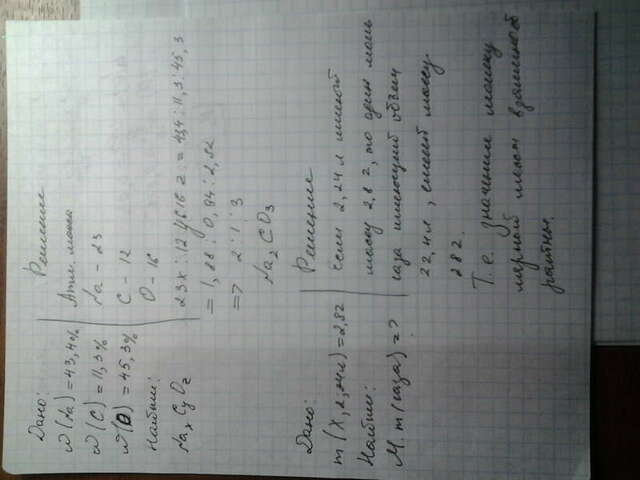 Дано:
ω(Na) = 43,4%
ω(C) = 11,3%
ω(O) = 45,3%
Найти:
NaxCyOz
Решение
Атм. масса
Na - 23
C - 12
O - 16
23x : 12y : 16z = 43,4 : 11,3 : 45,3
= 1,88 : 0,94 : 2,82
=> 2 : 1 : 3
Na2CO3
Дано:
m(X, 2,24л) = 2,8г
Найти:
M.m(газа) = ?
Решение
Если 2,24 л имеют
массу 2,8 г, то один моль
газа имеющий объем
22,4л, имеет массу
28г.
Т.е. значение между
мерной массы взаимнооб
ратны.